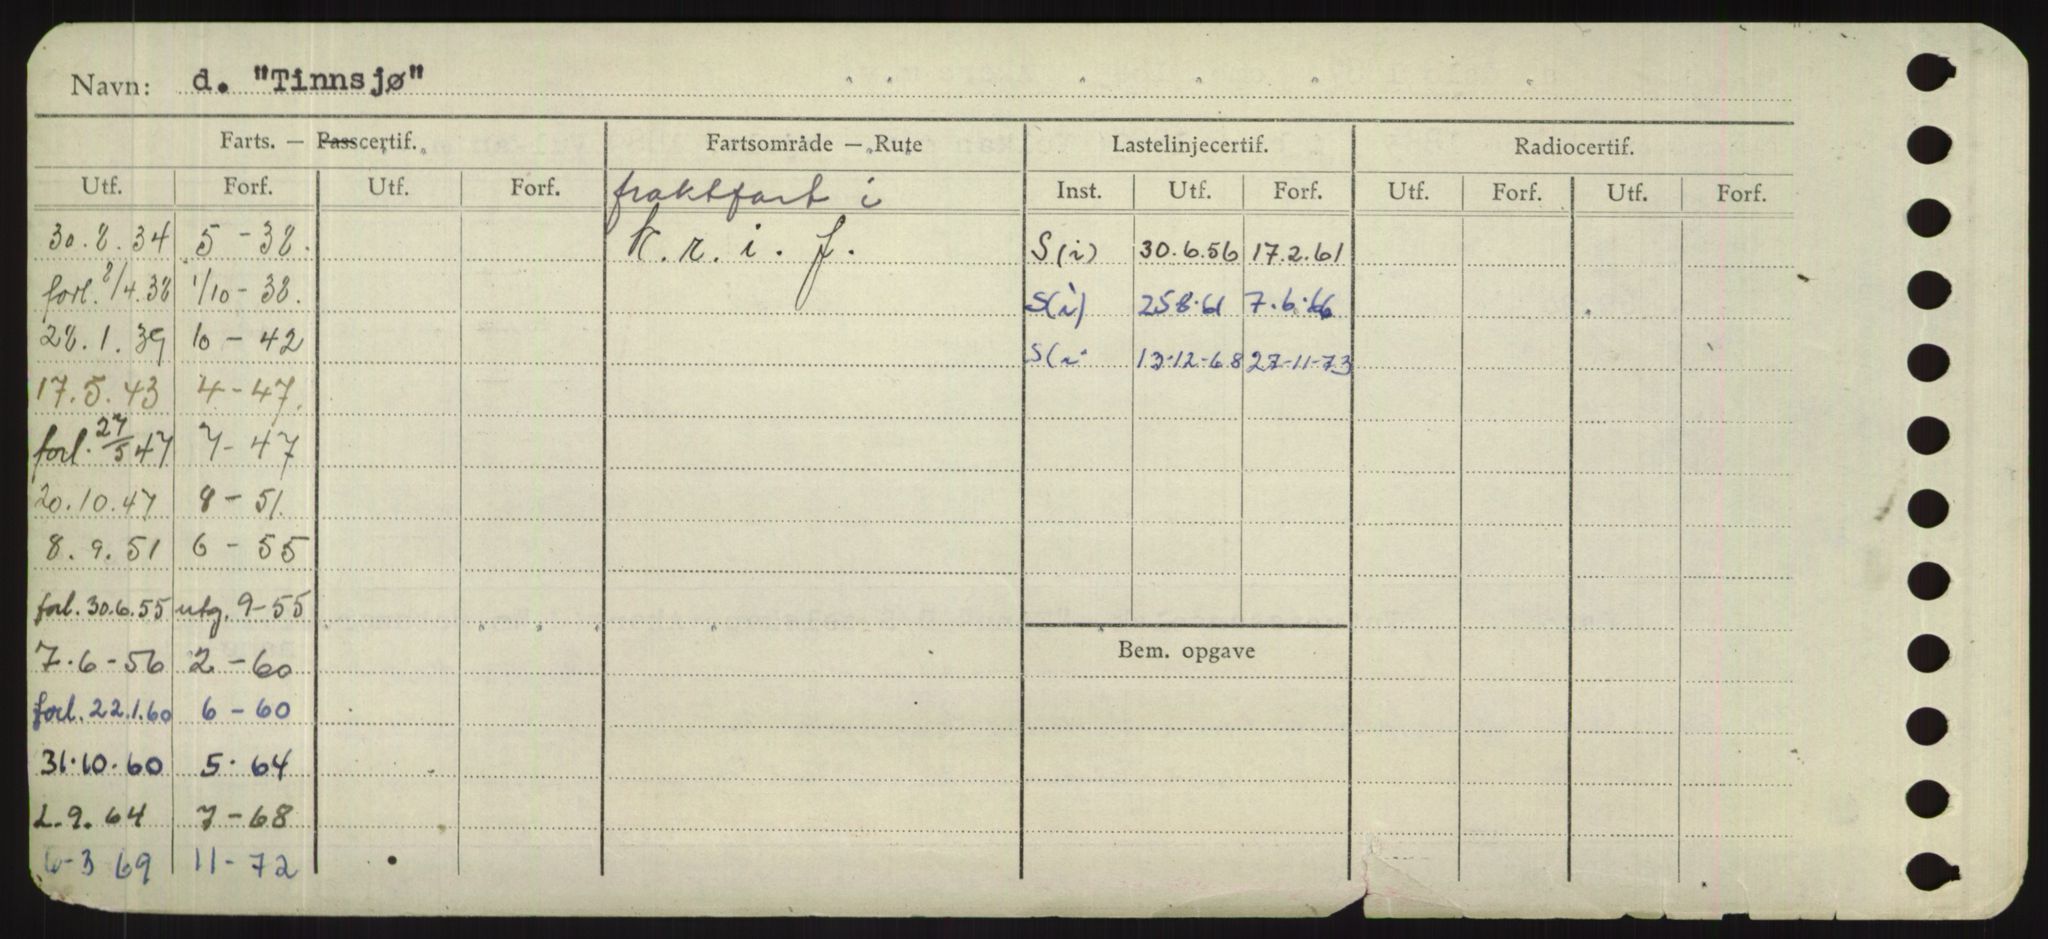 Navn: d. "Tinnsjø"
Farts. — Passcertif. Fartsområde — Rute Lastelinjecertif. Radiocertif.
Utf. Forf. Utf. Forf. fraktfart i Inst. Utf. Forf. Utf. Forf. Utf. Forf.
30.8.34 5 - 38. K. r. i. f. S(i) 30.6.56 17.2.61
forl. 8/4.38 1/10 - 38. S(i) 25.8.61 7.6.66
28.1.39 10 - 42 S(i 13-12-68 27-11-73
17.5.43 4 - 47.
forl. 27/5 47 7 - 47
20.10.47 8 - 51.
8.9.51 6 - 55
forl. 30.6.55 utg. 9-55
7.6-56 2 - 60 Bem. opgave
forl. 22.1.60 6 - 60
31.10.60 5. 64
2.9.64 7 - 68
6-3 69 11 - 72